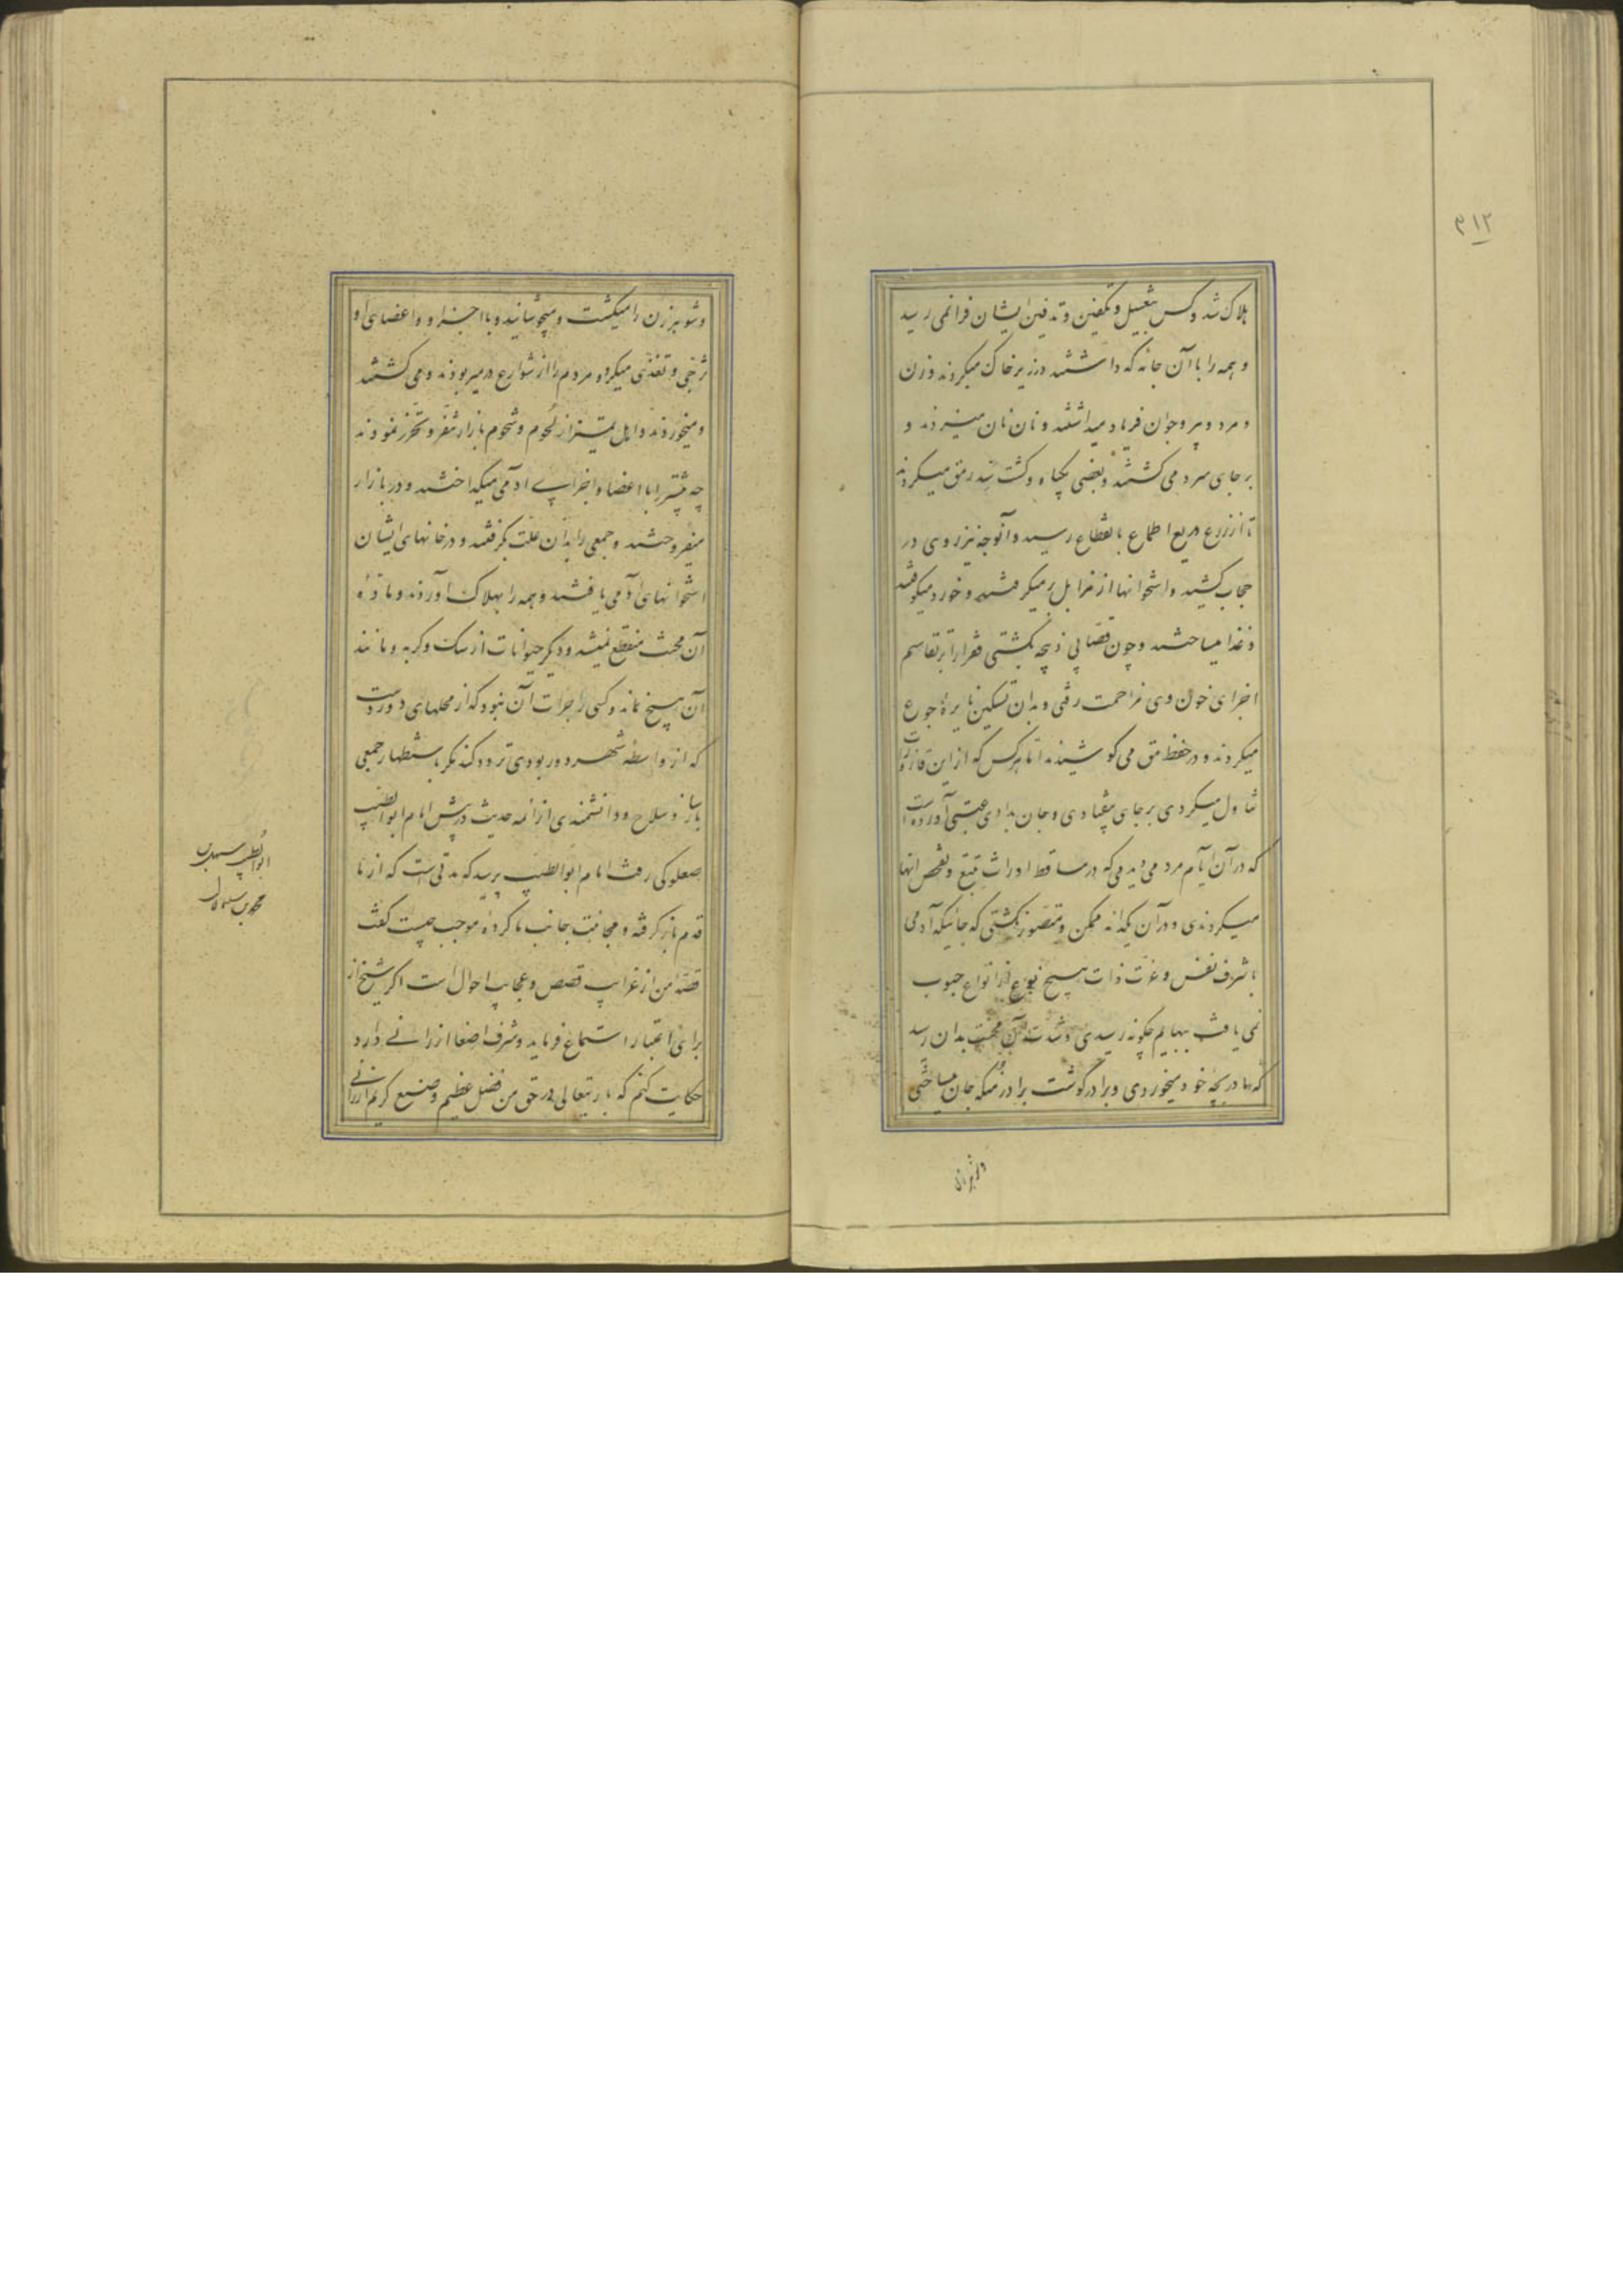 ۳۱۲
هلاک شد و کس بتغسیل و تکفین و تدفین ایشان فرا نمی رسید
و همه را با آن جامه که داشتند در زیر خاک میکردند و زن
و مرد و پیر و جوان فریاد میداشتند و نان نان میزدند و
بر جای سرد می کشتند و بعضی بگیاه و کشت سد رمق میکردند
تا از زرع و ریع اطماع بانقطاع رسید و آنوجه نیز روی در
حجاب کشید و استخوانها از مزابل بر میکرفتند و خورد میکوفتند
و غذا میساختند و چون قصابی ذبیحه بکشتی فقرا را بر تقاسم
اجزای خون وی مزاحمت رفتی و بدان تسکین نایره جوع
میکردند و در حفظ رمق می کوشیدند اما هر کس که از این قاذورات
تناول میکردی بر جای بیفتادی و جان بدادی عتبی آورده است
که در آن ایام مردم می دیدمی که در مساقط اوراث تتبع و تفحص انها
میکردندی و در آن یکدانه ممکن و متصور نکشتی که جائیکه آدمی
با شرف نفس و عزت ذات هیچ نوع از انواع حبوب
نمی یافت ببهایم چگونه رسیدی و شدت آن محنت بدان رسید
که مادر بچه خود میخوردی و برادر گوشت برادر مسکه جان میساختی
و شوهر زن را میکشت و میجوشانید و با اجزاء و اعضای او
تزجی و تغذی میکرد و مردم را از شوارع در میربودند و می کشتند
و میخوردند و اهل تمیز از لحوم و شحوم بازار تنفر و تحرز نمودند
چه بیشتر با اعضا و اجزای ادمی میکداختند و در بازار
میفروختند و جمعی را بدان علت بکرفتند و در خانهای ایشان
استخوانهای آدمی یافتند و همه را بهلاک آوردند و ماده
آن محنت منقطع نمیشد و دیگر حیوانات از سک و کربه و مانند
آن هیچ نماند و کسی را جرات آن نبود که از محلهای دوردست
که از واسطه شهر دور بودی تردد کند مکر باستظهار جمعی
باساز و سلاح و دانشمندی از ائمه حدیث در پیش امام ابو الطیب
صعلوکی رفت امام ابو الطیب پرسید که مدتی است که از ما
قدم باز کرفته و مجانبت جانب ما کرده موجب چیست گفت
قصه من از غرایب قصص و عجایب احوال است اکر شیخ از
برای اعتبار استماع فرماید و شرف اصغا ارزانی دارد
حکایت کنم که باریتعالی در حق من فضل عظیم و صنع کریم ارزانی
ابو الطیب سهل بن
محمد بن سلیمان